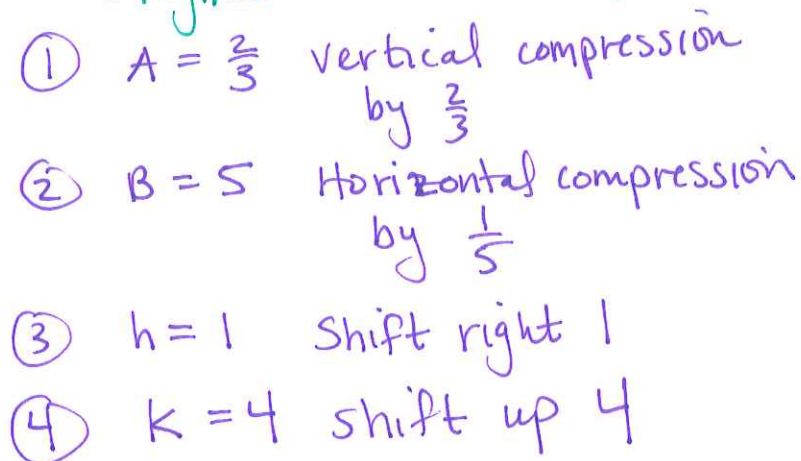 ① A = 2/3 vertical compression
by 2/3
② B = 5 Horizontal compression
by 1/5
③ h = 1 Shift right 1
④ K = 4 shift up 4